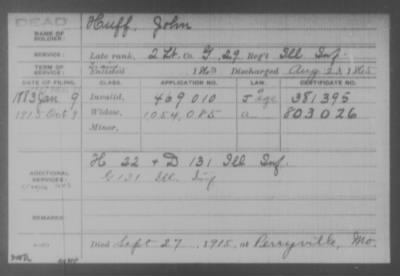 DEAD
NAME OF SOLDIER: Huff, John
SERVICE: Late rank, 2 Lt. Co. G, 29 Reg't Ill Inf.
TERM OF SERVICE: Enlisted 186 Discharged Aug 23, 1865
DATE OF FILING. CLASS. APPLICATION NO. LAW. CERTIFICATE NO.
1883 Jan 9 Invalid, 469 010 381395
1915 Oct 9 Widow, 1054,085 803026
Minor,
ADDITIONAL SERVICES: H 22 + D 131 Ill Inf.
G 131 Ill. Inf
REMARKS:
Died Sept 27, 1915, at Perryville, Mo.